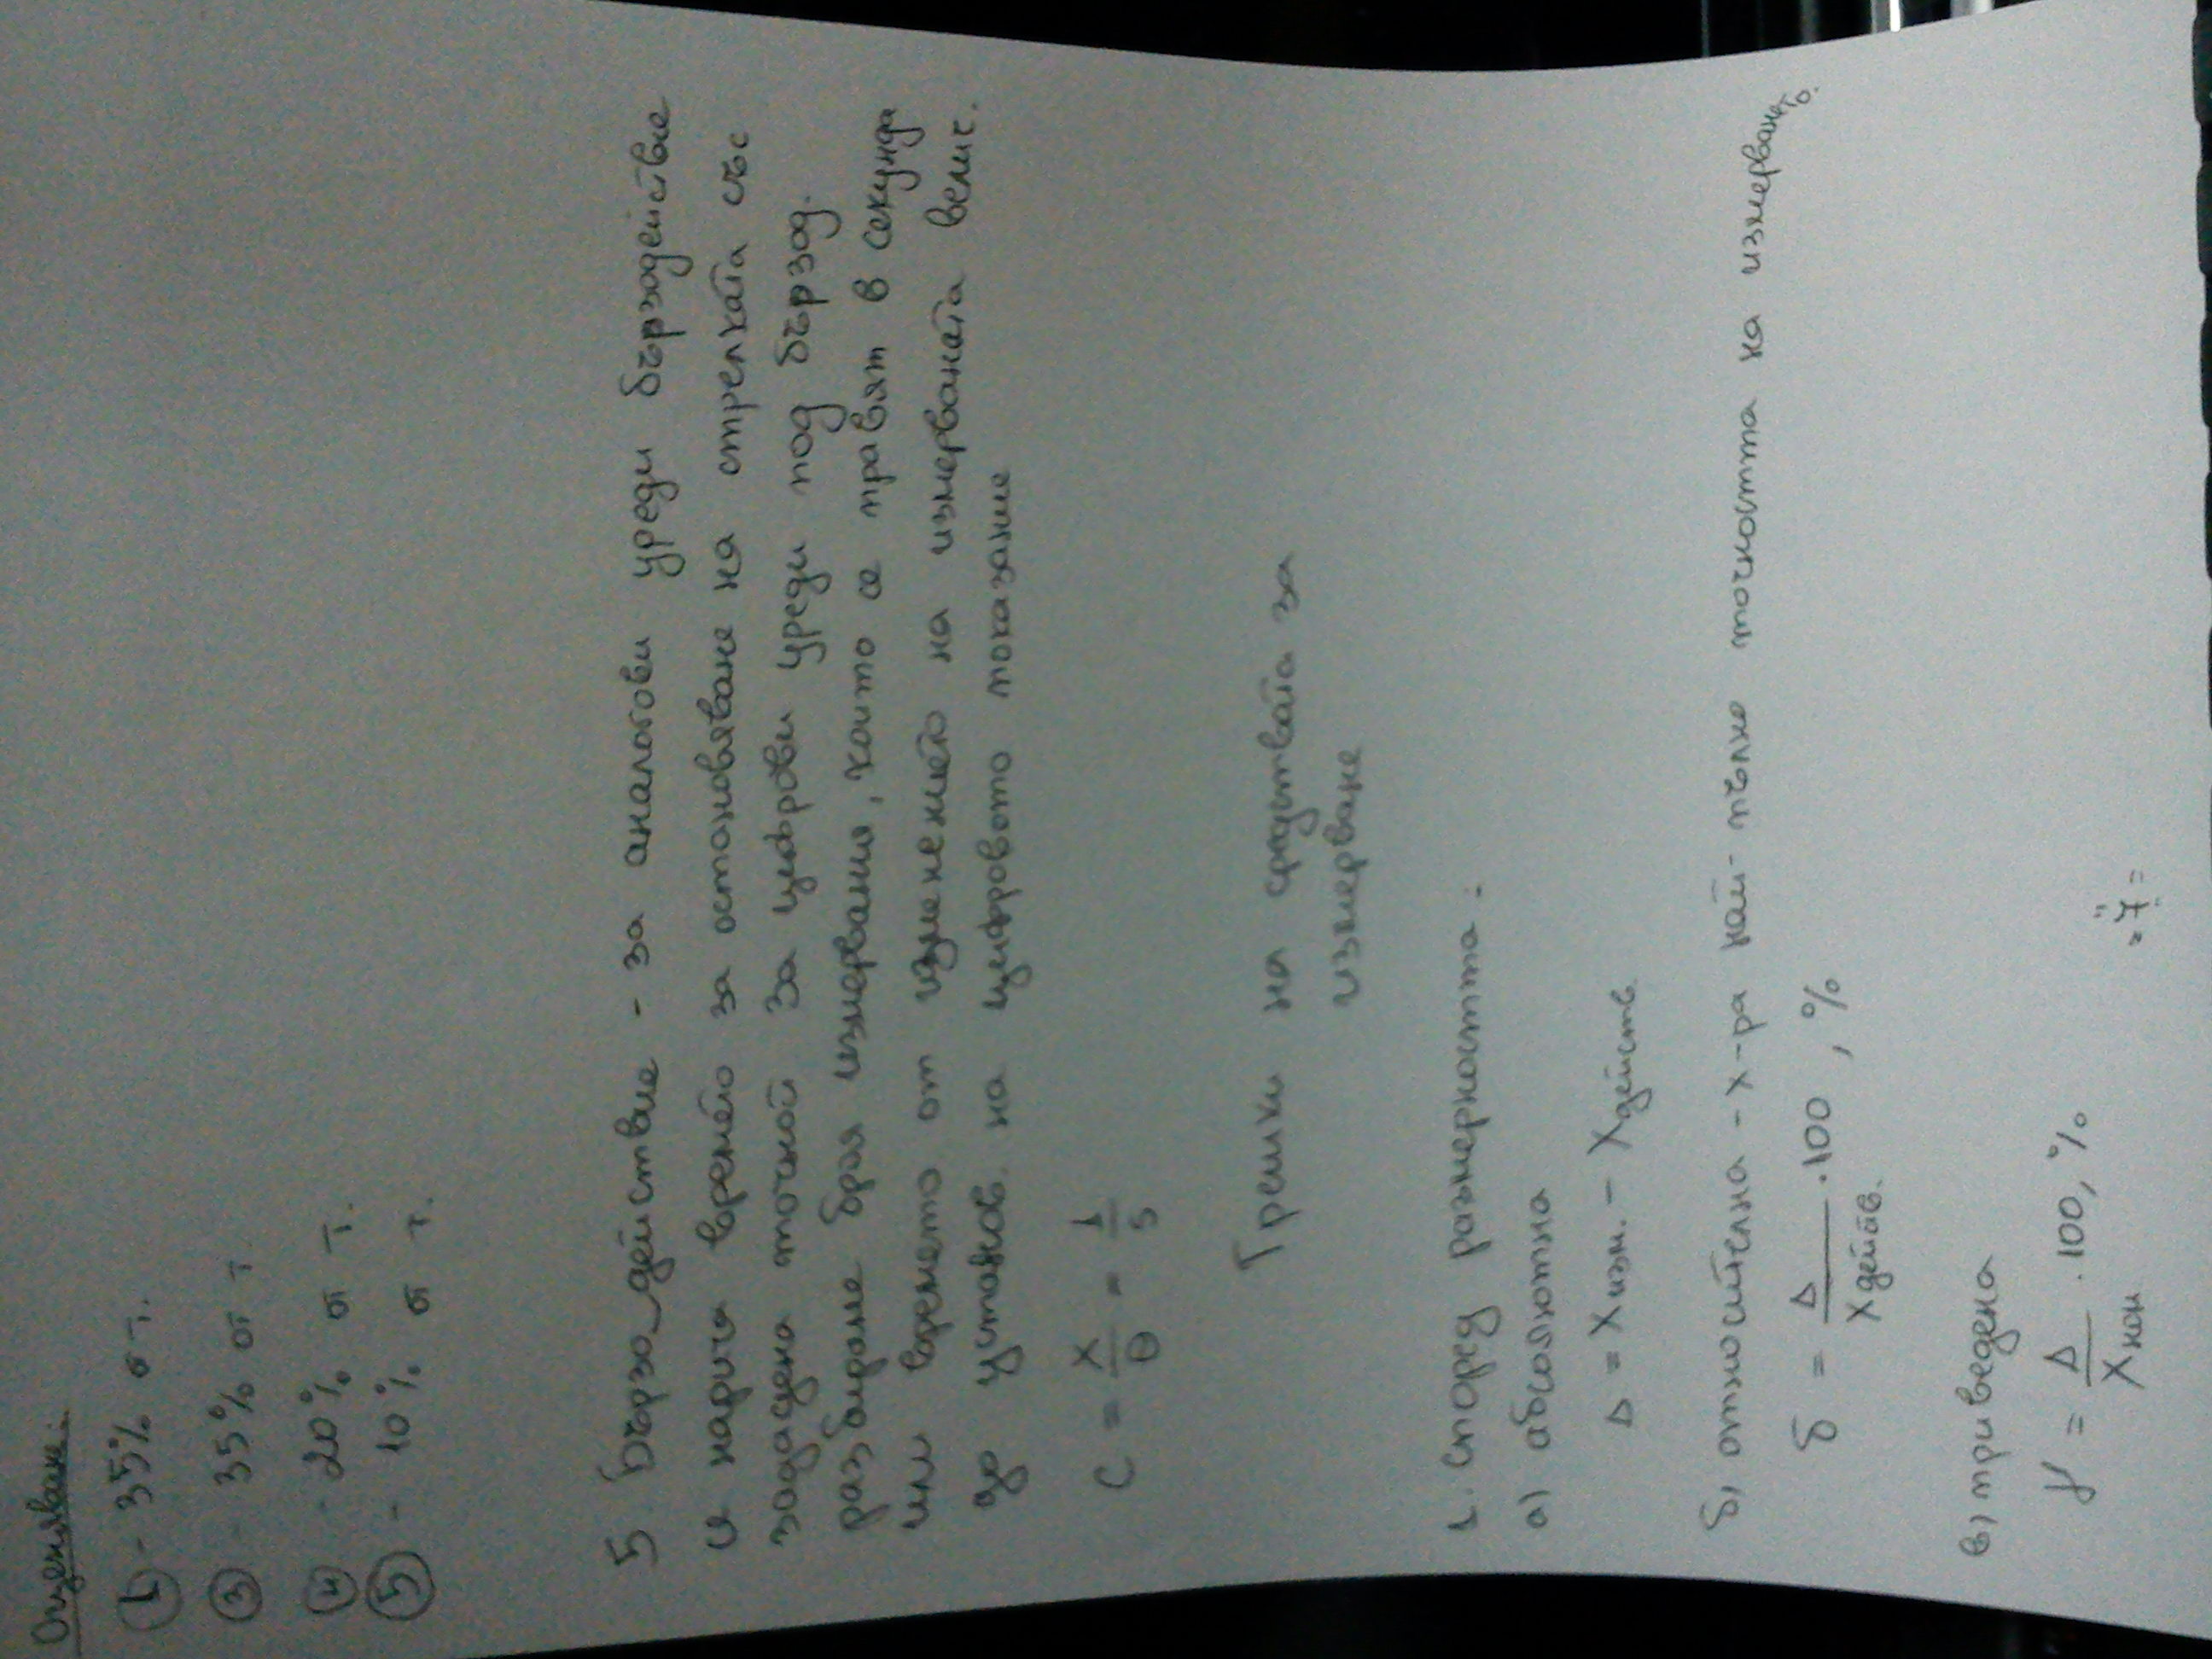 Оценяване:
① - 35% от т.
③ - 35% от т.
④ - 20% от т.
⑤ - 10% от т.
5. Бързо действие - за аналогови уреди бързодействие
се нарича времето за установяване на стрелката със
зададена точност. За цифрови уреди под бързод.
разбираме броя измервания, които се правят в секунда
или времето от изменението на измерваната велич.
до установ. на цифровото показание
C = X/θ = 1/5
Грешки на средствата за
измерване
1. Според размерността:
а) абсолютна
Δ = Xизм. - Xдейств.
б) относителна - х-ра най-пълно точността на измерването.
δ = Δ/Xдейств. .100, %
в) приведена
γ = Δ/Xкон .100, %
=7=